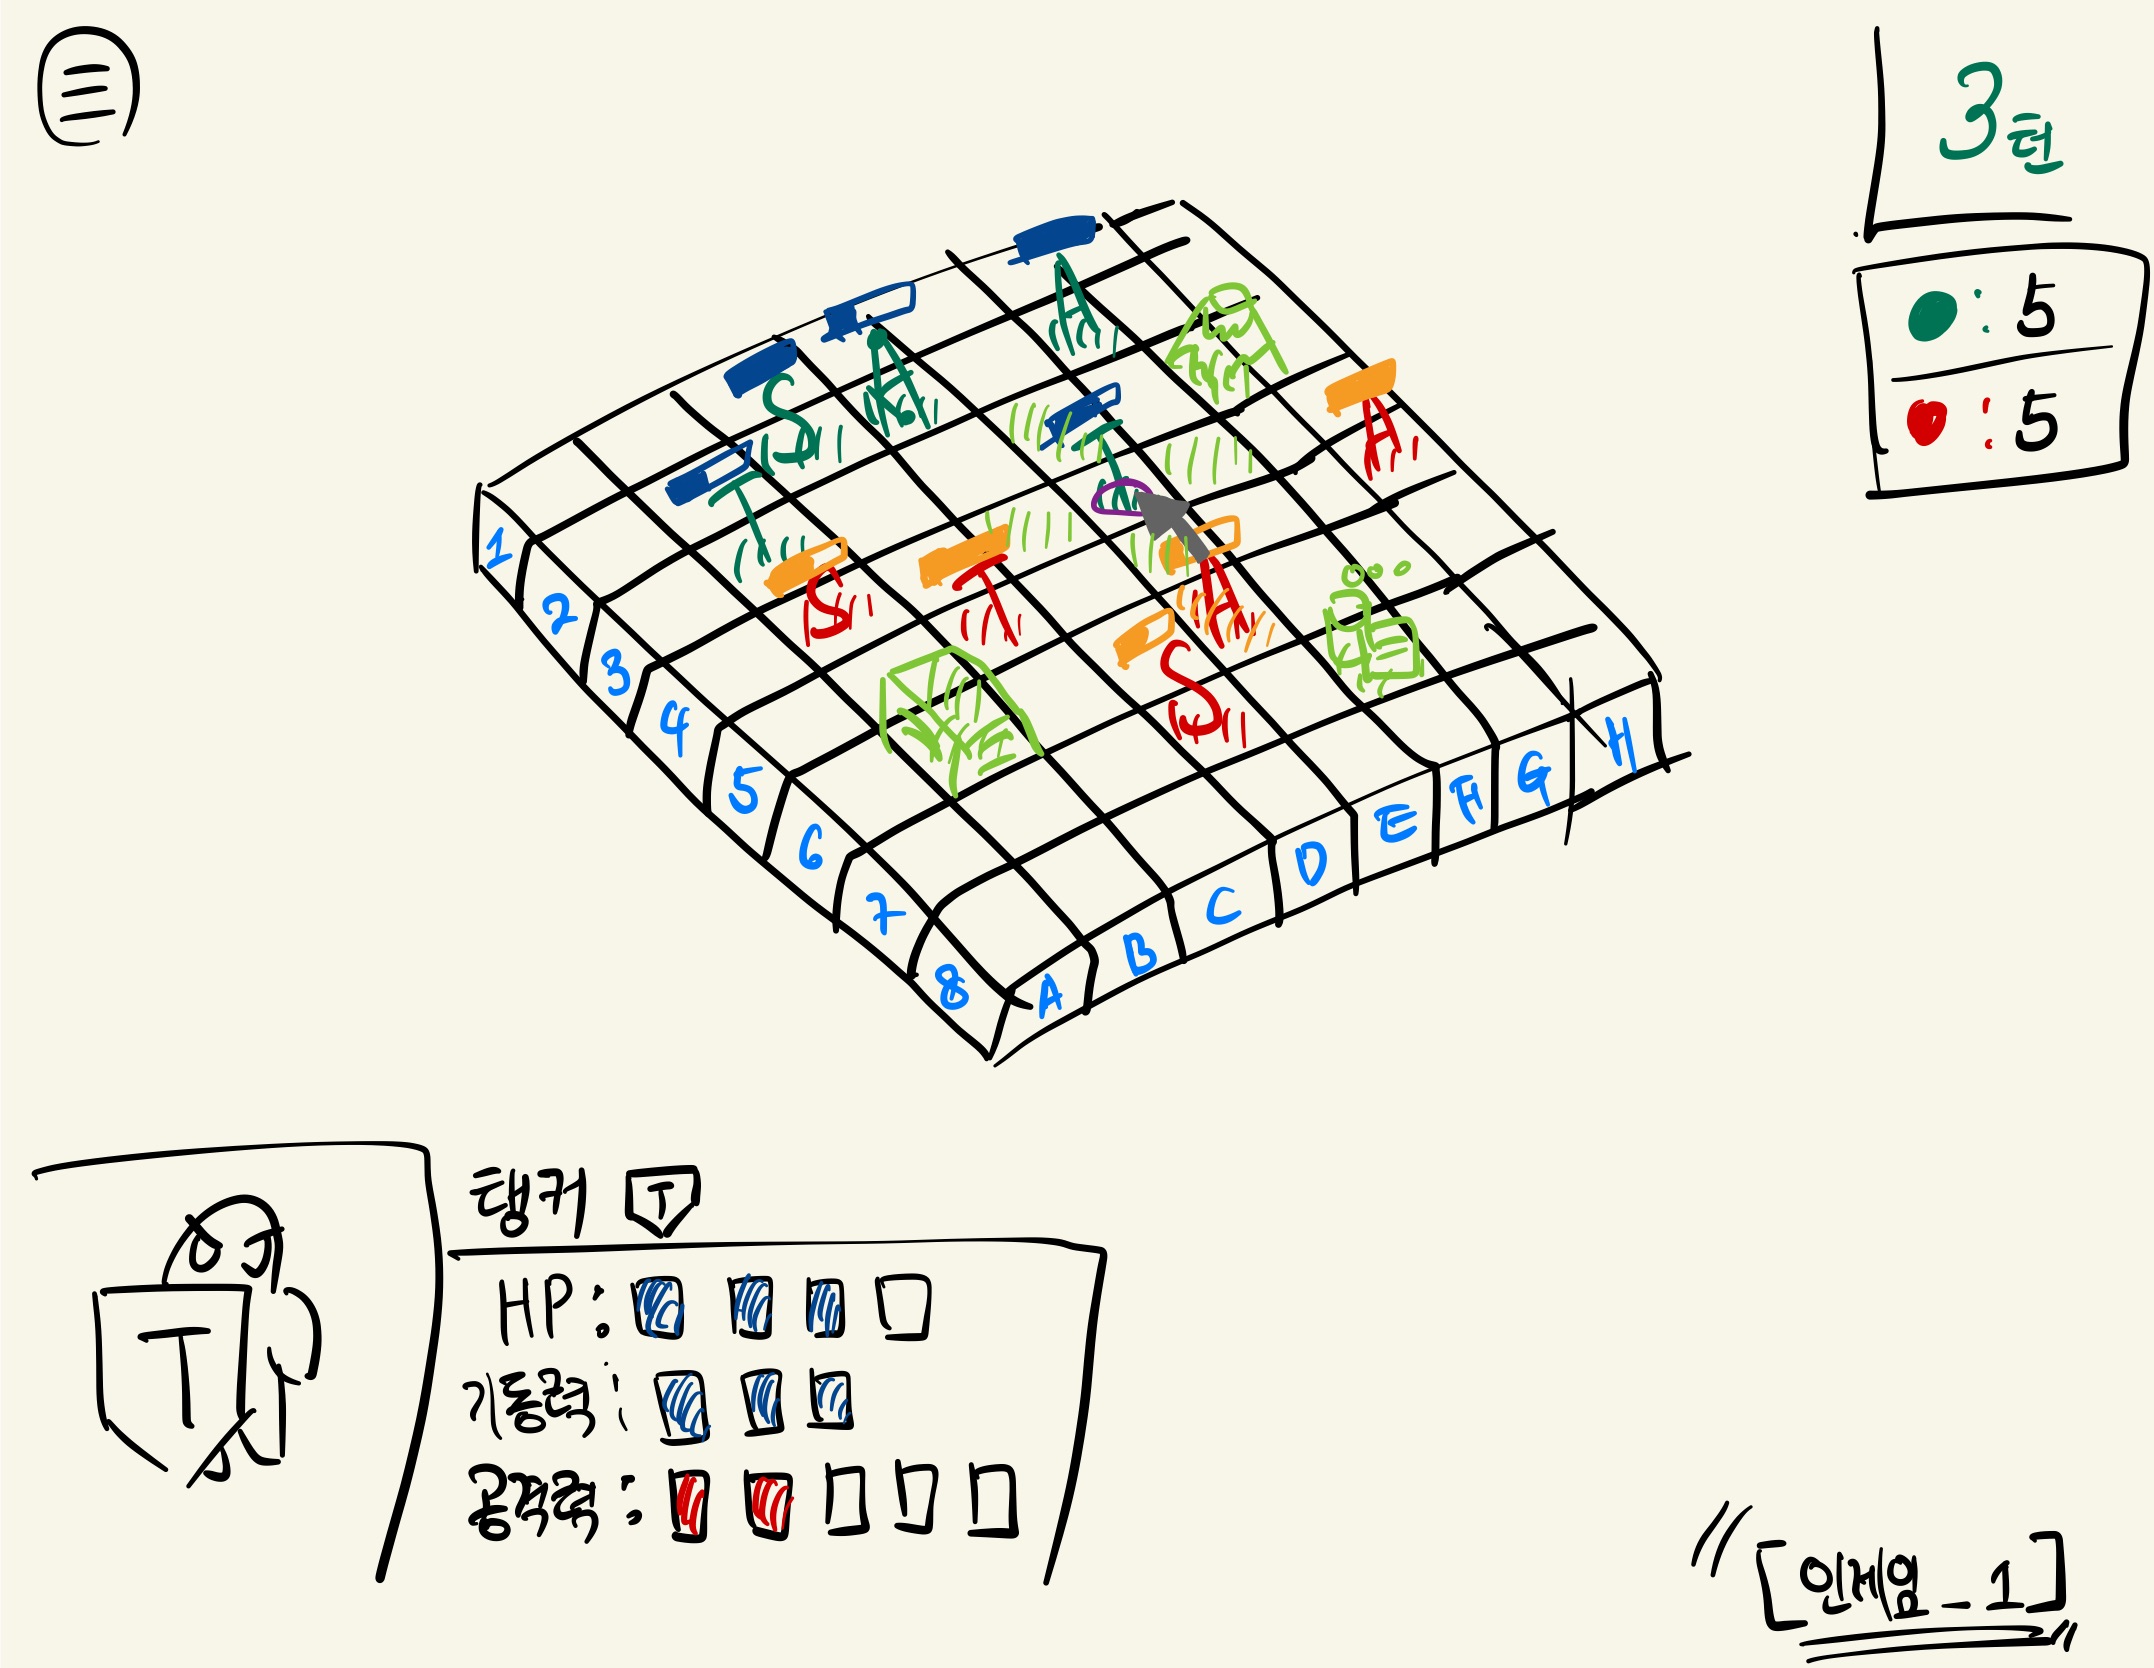 3턴
: 5
: 5
A
A
S
A
T
T
S
T
A
S
1
2
3
4
5
6
7
8
A
B
C
D
E
F
G
H
탱커 T
T
HP :
기동력 :
공격력 :
[인게임_1]